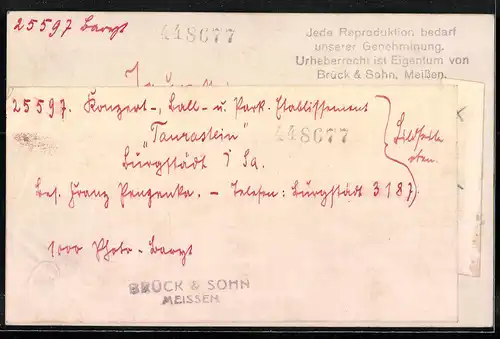 25597 Baryt
448677
Jede Reproduktion bedarf
unserer Genehmigung.
Urheberrecht ist Eigentum von
Brück & Sohn, Meißen.
25597. Konzert-, Ball- u. Park-Etablissement
"Taurastein" 448677
Burgstädt i/Sa. Bildseite
oben.
Bes. Franz Penzenka. – Telefon: Burgstädt 3187.
1000 Photo-Baryt
BRÜCK & SOHN
MEISSEN